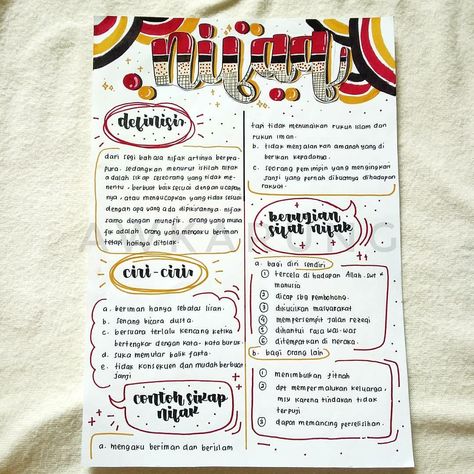 nifaq
definisi
dari segi bahasa nifak artinya berpra-
pura. sedangkan menurut istilah nifak
adalah sikap seseorang yang tidak me-
nentu, berbuat baik sesuai dengan ucapan-
nya, atau mengucapkan yang tidak sesuai
dengan apa yang ada dipikirannya. nifak
sama dengan munafik. orang yang muna
fik adalah orang yang mengaku beriman
tetapi hatinya ditolak.
ciri-ciri
a. beriman hanya sebatas lisan.
b. senang bicara dusta.
c. bersuara terlalu kencang ketika
bertengkar dengan kata-kata buruk
d. suka memutar balik fakta.
e. tidak konsekuen dan mudah berbuat
janji
contoh sikap
nifak
a. mengaku beriman dan berislam
tapi tidak menunaikan rukun islam dan
rukun iman.
b. tidak menjalankan amanah yang di
berikan kepadanya.
c. seorang pemimpin yang mengingkari
janji yang pernah dibuatnya dihadapan
rakyat.
kerugian
sifat nifak
a. bagi diri sendiri
1 tercela di hadapan Allah swt &
manusia
2 dicap sbg pembohong.
3 dikucilkan masyarakat
4 mempersempit jalan rezeqi
5 dihantui rasa was-was
6 ditempatkan di neraka.
b. bagi orang lain
1 menimbulkan fitnah
2 dpt mempermalukan keluarga,
mslx karena tindakan tidak
terpuji
3 dapat memancing perselisihan.